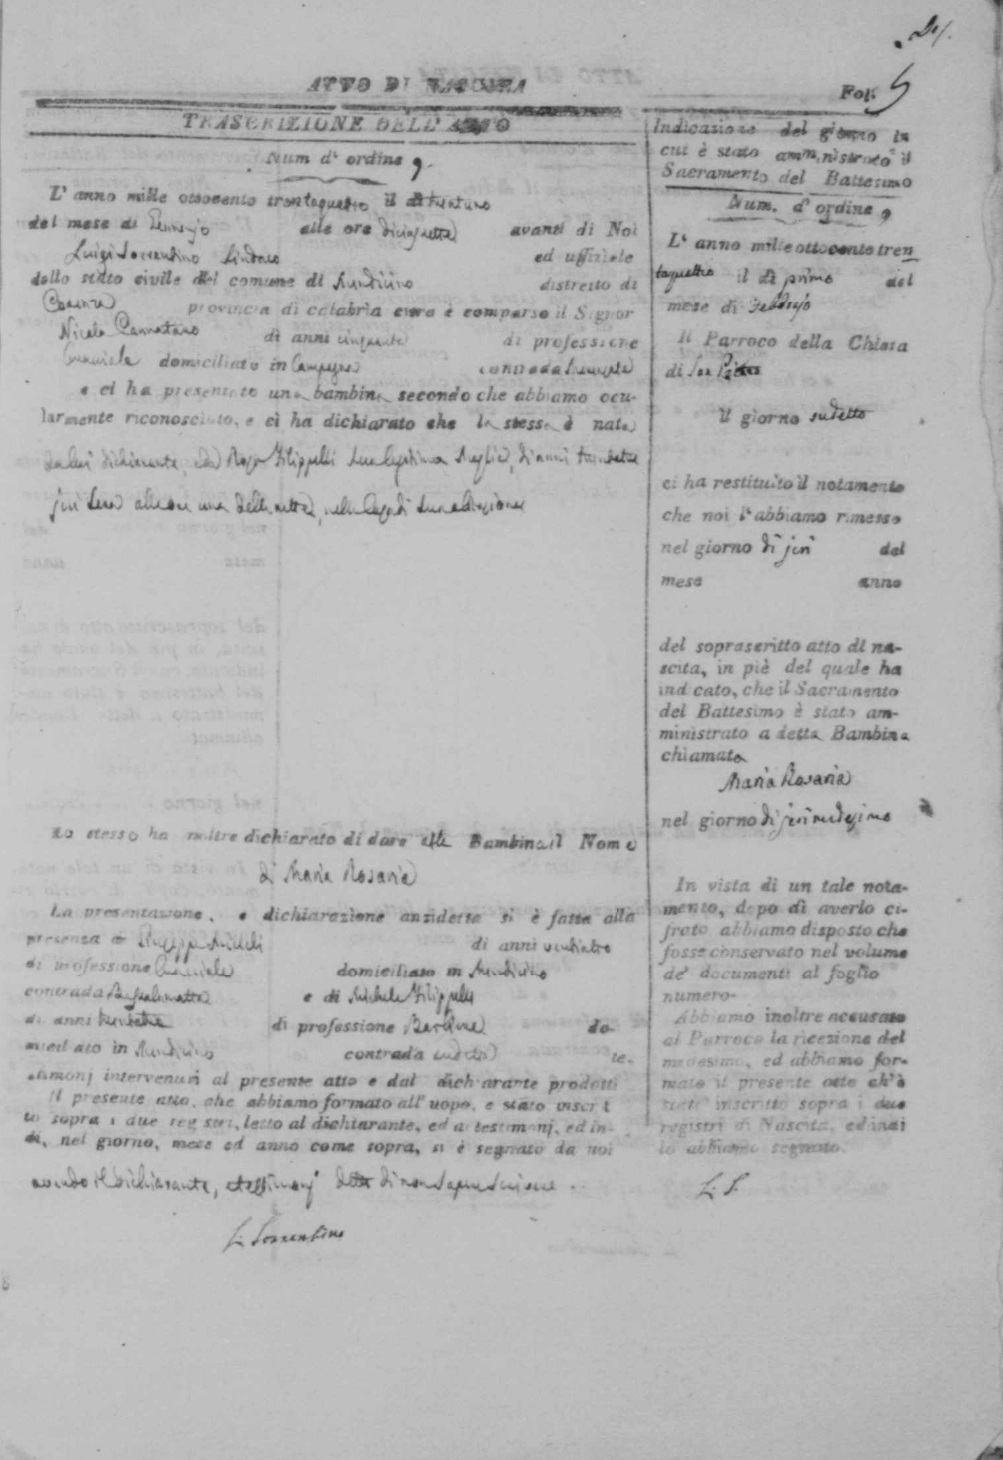 ATTO DI NASCITA
Fol. 5
TRASCRIZIONE DELL' ATTO
Num d' ordine 9.
L' anno mille ottocento trentaquattro il dì trentuno
del mese di Gennajo alle ore diciasette avanti di Noi
Luigi Sorrentino Sindaco ed uffiziale
dello stato civile del comune di Mendicino distretto di
Cosenza provincia di calabria citra è comparso il Signor
Nicola Cannataro di anni cinquanta di professione
Bracciale domiciliato in Campagna contrada
e ci ha presentato una bambina secondo che abbiamo ocu-
larmente riconosciuto, e ci ha dichiarato che la stessa è nata
da lui dichiarante, e da Rosa Filippelli sua legittima Moglie, di anni trentatre
jeri sera alle ore una della notte, nella casa di sua abitazione
Lo stesso ha inoltre dichiarato di dare alla Bambina il Nome
di Maria Rosaria
La presentazione, e dichiarazione anzidetta si è fatta alla
presenza di Giuseppe di anni ventiotto
di professione Bracciale domiciliato in Mendicino
contrada e di Michele Filippelli
di anni trentatre di professione do-
miciliato in Mendicino contrada sudetta te-
stimonj intervenuti al presente atto e dal dichiarante prodotti
Il presente atto, che abbiamo formato all' uopo, e stato inscrit
to sopra i due registri, letto al dichiarante, ed a testimonj, ed in-
di, nel giorno, mese ed anno come sopra, si è segnato da noi
avendo il dichiarante, e testimonj detto di non sapere scrivere.
L. Sorrentino
Indicazione del giorno in
cui è stato amministrato il
Sacramento del Battesimo
Num. d' ordine 9
L' anno mille ottocento tren
taquattro il dì primo del
mese di Febbrajo
Il Parroco della Chiesa
di San Pietro
il giorno sudetto
ci ha restituito il notamento
che noi l' abbiamo rimesso
nel giorno di jeri del
mese anno
del soprascritto atto di na-
scita, in piè del quale ha
indicato, che il Sacramento
del Battesimo è stato am-
ministrato a detta Bambina
chiamata
Maria Rosaria
nel giorno di jeri medesimo
In vista di un tale nota-
mento, dopo di averlo ci-
frato abbiamo disposto che
fosse conservato nel volume
de' documenti al foglio
numero-
Abbiamo inoltre accusato
al Parroco la ricezione del
medesimo, ed abbiamo for-
mato il presente atto ch' è
stato inscritto sopra i due
registri di Nascita, ed indi
lo abbiamo segnato.
L. S.